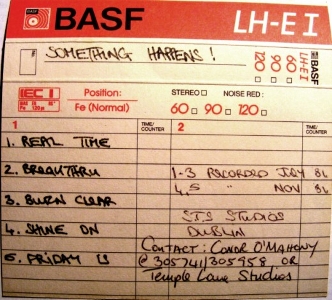 BASF LH-E I
SOMETHING HAPPENS!
120 90 60 LH-E I BASF
IEC I Position: STEREO NOISE RED:
Fe (Normal) 60 90 120
1 TIME/COUNTER 2 TIME/COUNTER
1. REAL TIME
2. BREAKTHRU 1-3 RECORDED JULY 86
4,5 " NOV 86
3. BURN CLEAR
STS STUDIOS
4. SHINE ON DUBLIN
CONTACT: CONOR O'MAHONY
5. FRIDAY @ 305741/305958 OR
Temple Lane Studios